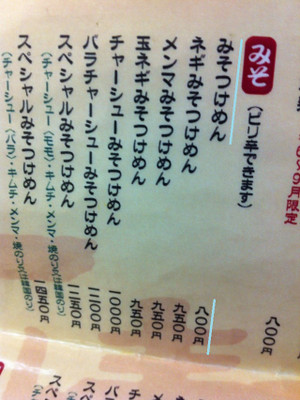 〜9月限定
八〇〇円
みそ（ピリ辛できます）
みそつけめん 八〇〇円
ネギみそつけめん 九五〇円
メンマみそつけめん 九五〇円
玉ネギみそつけめん 九五〇円
チャーシューみそつけめん 一〇〇〇円
バラチャーシューみそつけめん 一一〇〇円
スペシャルみそつけめん 一二五〇円
（チャーシュー（モモ）・キムチ・メンマ・焼のり又は韓国のり）
スペシャルみそつけめん 一四五〇円
（チャーシュー（バラ）・キムチ・メンマ・焼のり又は韓国のり）